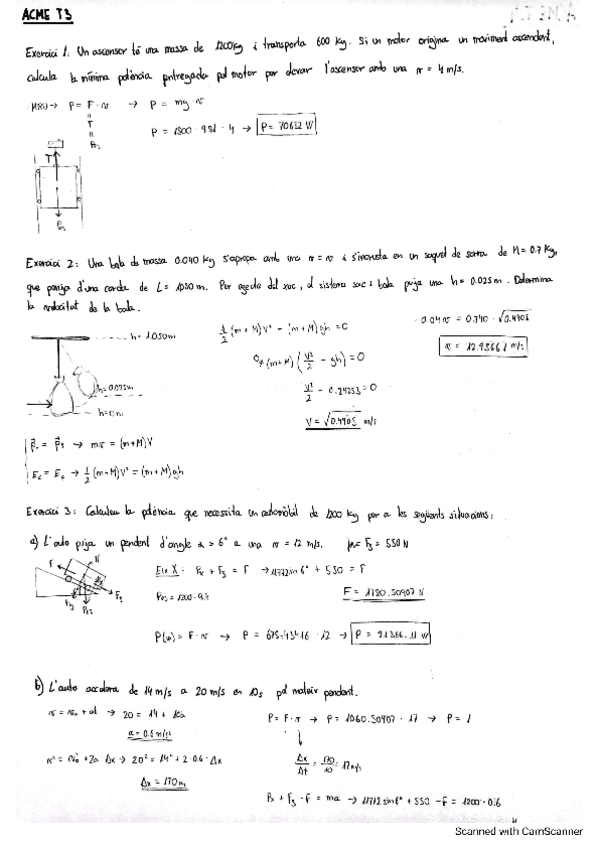 ACME T3
Exercici 1. Un ascensor té una massa de 1200kg i transporta 600 kg. Si un motor origina un moviment ascendent,
calcula la mínima potència entregada pel motor per elevar l'ascensor amb una v = 4 m/s.
MRU → P = F · v → P = mg · v
T
P = 1800 · 9.81 · 4 → P = 70632 W
T
Exercici 2: Una bala de massa 0.040 kg s'apropa amb una v = v i s'incrusta en un saquet de sorra de M = 0.7 kg,
que penja d'una corda de L = 1050m. Per efecte del xoc, el sistema sac i bala puja una h = 0.025m. Determina
la velocitat de la bala.
h = 1.050m
h = 0.025m
h = 0m
1/2 (m + M)V² - (m + M)gh = 0
(m + M) (V²/2 - gh) = 0
V²/2 - 0.24525 = 0
V = √0.4905 m/s
0.04v = 0.740 · √0.4905
→ mv = (m+M)V
→ 1/2 (m+M)V² = (m+M)gh
Exercici 3: Calculeu la potència que necessita un automòbil de 1200 kg per a les següents situacions:
a) L'auto puja un pendent d'angle α = 6° a una v = 12 m/s. Fg = 550 N
F
N
Eix X: Px + Fg = F → 11772 sin 6° + 550 = F
F = 1780.50907 N
P(w) = F · v → P = · 12 → P = 21366.11 W
b) L'auto accelera de 14 m/s a 20 m/s en 10s pel mateix pendent.
v = v₀ + at → 20 = 14 +
a = 0.6 m/s²
v² = v₀² + 2a Δx → 20² = 14² + 2 · 0.6 · Δx
Δx = 170m
P = F · v → P = 1060.50907 · 17 → P =
Δx/Δt = 170/10 = 17 m/s
Px + Fg - F = ma → 11772 sin 6° + 550 - F = 1200 · 0.6
Scanned with CamScanner